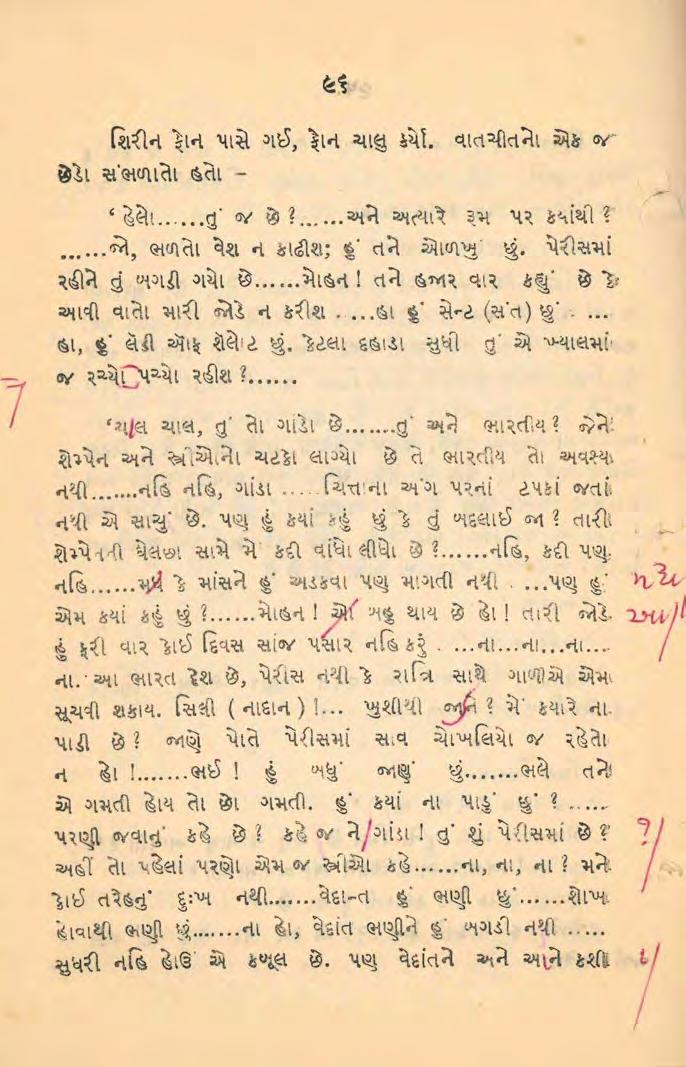 ૯૬
શિરીન ફોન પાસે ગઈ, ફોન ચાલુ કર્યો. વાતચીતનો એક જ
છેડો સંભળાતો હતો –
‘ હેલો......તું જ છે ?......અને અત્યારે રૂમ પર કયાંથી ?
......જો, ભળતો વેશ ન કાઢીશ; હું તને ઓળખુ છું. પેરીસમાં
રહીને તું બગડી ગયો છે......મોહન ! તને હજાર વાર કહ્યું છે કે
આવી વાતો મારી જોડે ન કરીશ . ....હા હું સેન્ટ (સંત) છું . ...
હા, હું લૅડી ઑફ શૅલોટ છું. કેટલા દહાડા સુધી તું એ ખ્યાલમાં
જ રચ્યો પચ્યો રહીશ ?......
‘ચાલ ચાલ, તું તો ગાંડો છે.......તું અને ભારતીય ? જેને
શેમ્પેન અને સ્ત્રીઓનો ચટકો લાગ્યો છે તે ભારતીય તો અવશ્ય
નથી.......નહિ નહિ, ગાંડા ..... ચિત્તાના અંગ પરનાં ટપકાં જતાં
નથી એ સાચું છે. પણ હું કયાં કહું છું કે તું બદલાઈ જા ? તારી
શેમ્પેનની ઘેલછા સામે મેં કદી વાંધો લીધો છે ?......નહિ, કદી પણ
નહિ......મધ કે માંસને હું અડકવા પણ માગતી નથી . ...પણ હું મદ્ય
એમ કયાં કહું છું ?......મોહન ! ઓ બહુ થાય છે હો ! તારી જોડે આ
હું ફરી વાર કોઈ દિવસ સાંજ પસાર નહિ કરું . ...ના...ના...ના...
ના. આ ભારત દેશ છે, પેરીસ નથી કે રાત્રિ સાથે ગાળીએ એમ
સૂચવી શકાય. સિલી ( નાદાન ) !... ખુશીથી જાને ? મેં કયારે ના
પાડી છે ? જાણે પોતે પેરીસમાં સાવ ચોખલિયો જ રહેતો
ન હો !.......ભઈ ! હું બધું જાણું છું.......ભલે તને
એ ગમતી હોય તો છો ગમતી. હું કયાં ના પાડું છું ? ......
પરણી જવાનું કહે છે ? કહે જ ને ગાંડા ! તું શું પેરીસમાં છે ? ?/
અહીં તો પહેલાં પરણો એમ જ સ્ત્રીઓ કહે......ના, ના, ના ? મને
કોઈ તરેહનું દુઃખ નથી.......વેદાન્ત હું ભણી છું......શોખ
હોવાથી ભણી છું.......ના હો, વેદાંત ભણીને હું બગડી નથી .....
સુધરી નહિ હોઉં એ કબૂલ છે. પણ વેદાંતને અને આને કશી